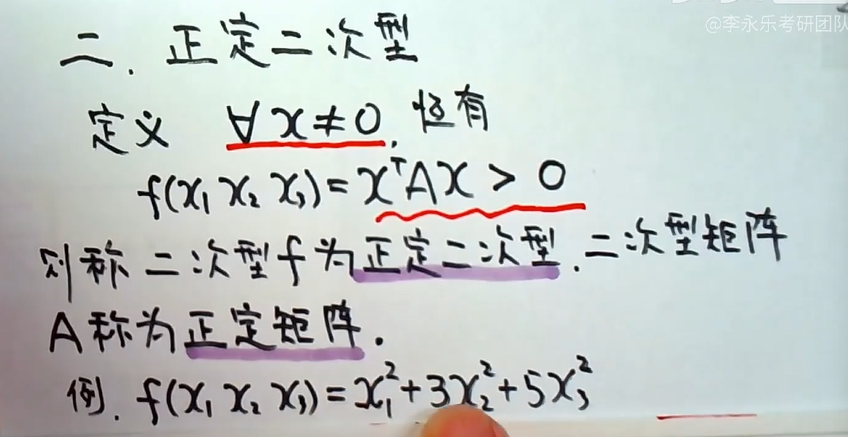 @李永乐考研团队
二、正定二次型
定义 ∀x≠0,恒有
f(x₁ x₂ x₃)=xᵀAx>0
则称二次型f为正定二次型.二次型矩阵
A称为正定矩阵.
例. f(x₁ x₂ x₃)=x₁²+3x₂²+5x₃²